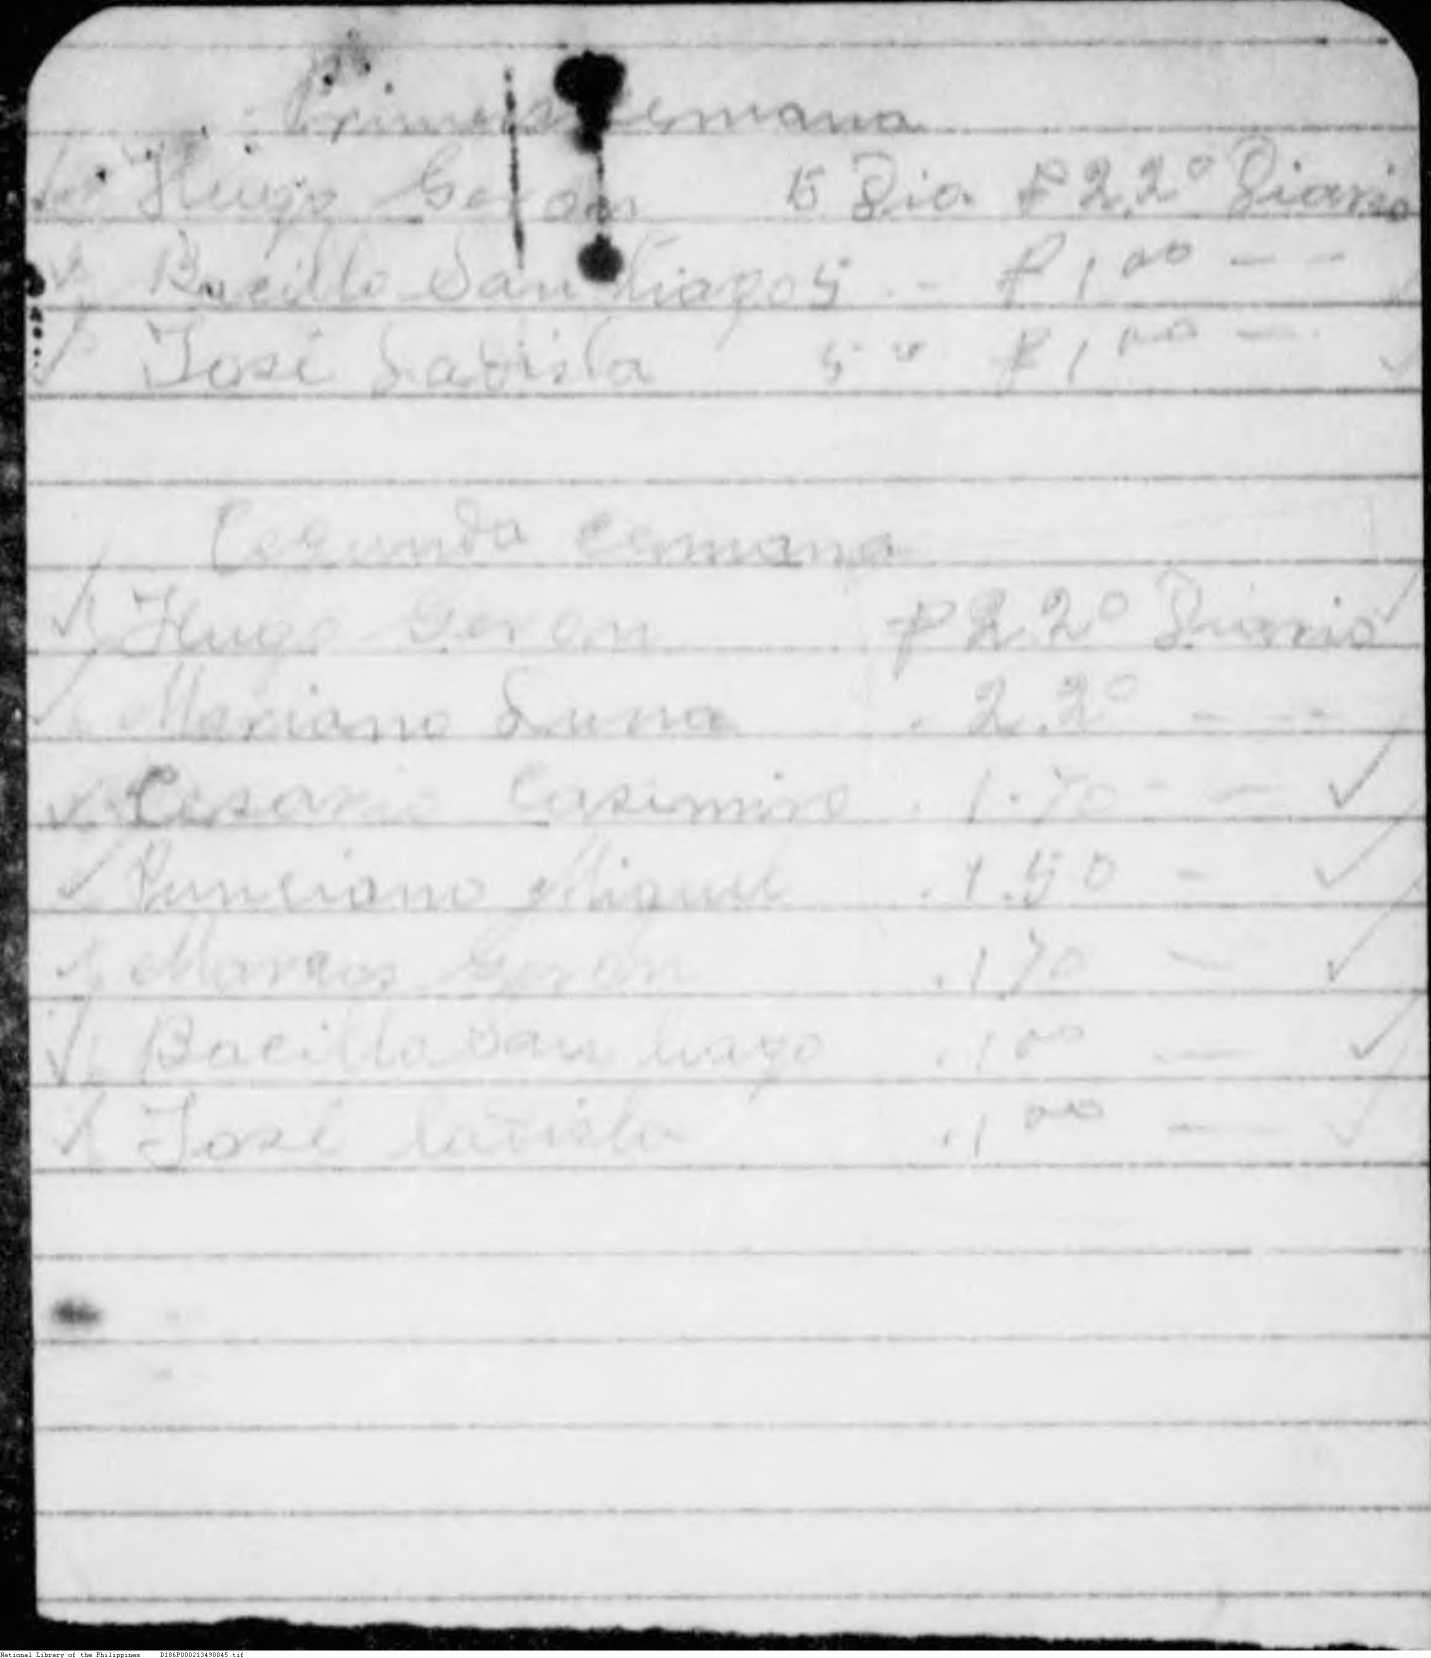 Primera Cemana
Hugo Geron 5 Dia ₱ 2.20 Diario
Bacilllo San tiago 5 " ₱ 1.00 — —
José Latista 5 " ₱ 1.00 —
Cegunda Cemana
Hugo Geron ₱ 2.20 Diario
Mariano Luna . 2.20 — —
Cesario Casimiro . 1.70 — —
Punciano Miguel . 1.50 —
Marcos Geron . 1.70 —
Bacilllo San tiago . 1.00 —
José Latista . 1.00 —
National Library of the Philippines D186P000213490045.tif